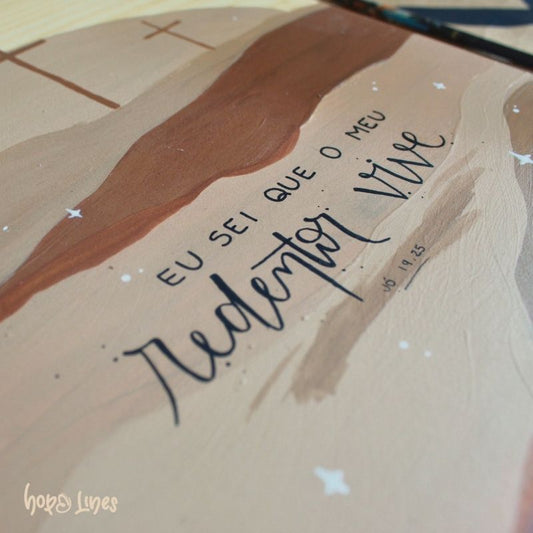 EU SEI QUE O MEU
redentor vive
JÓ 19.25
hope Lines